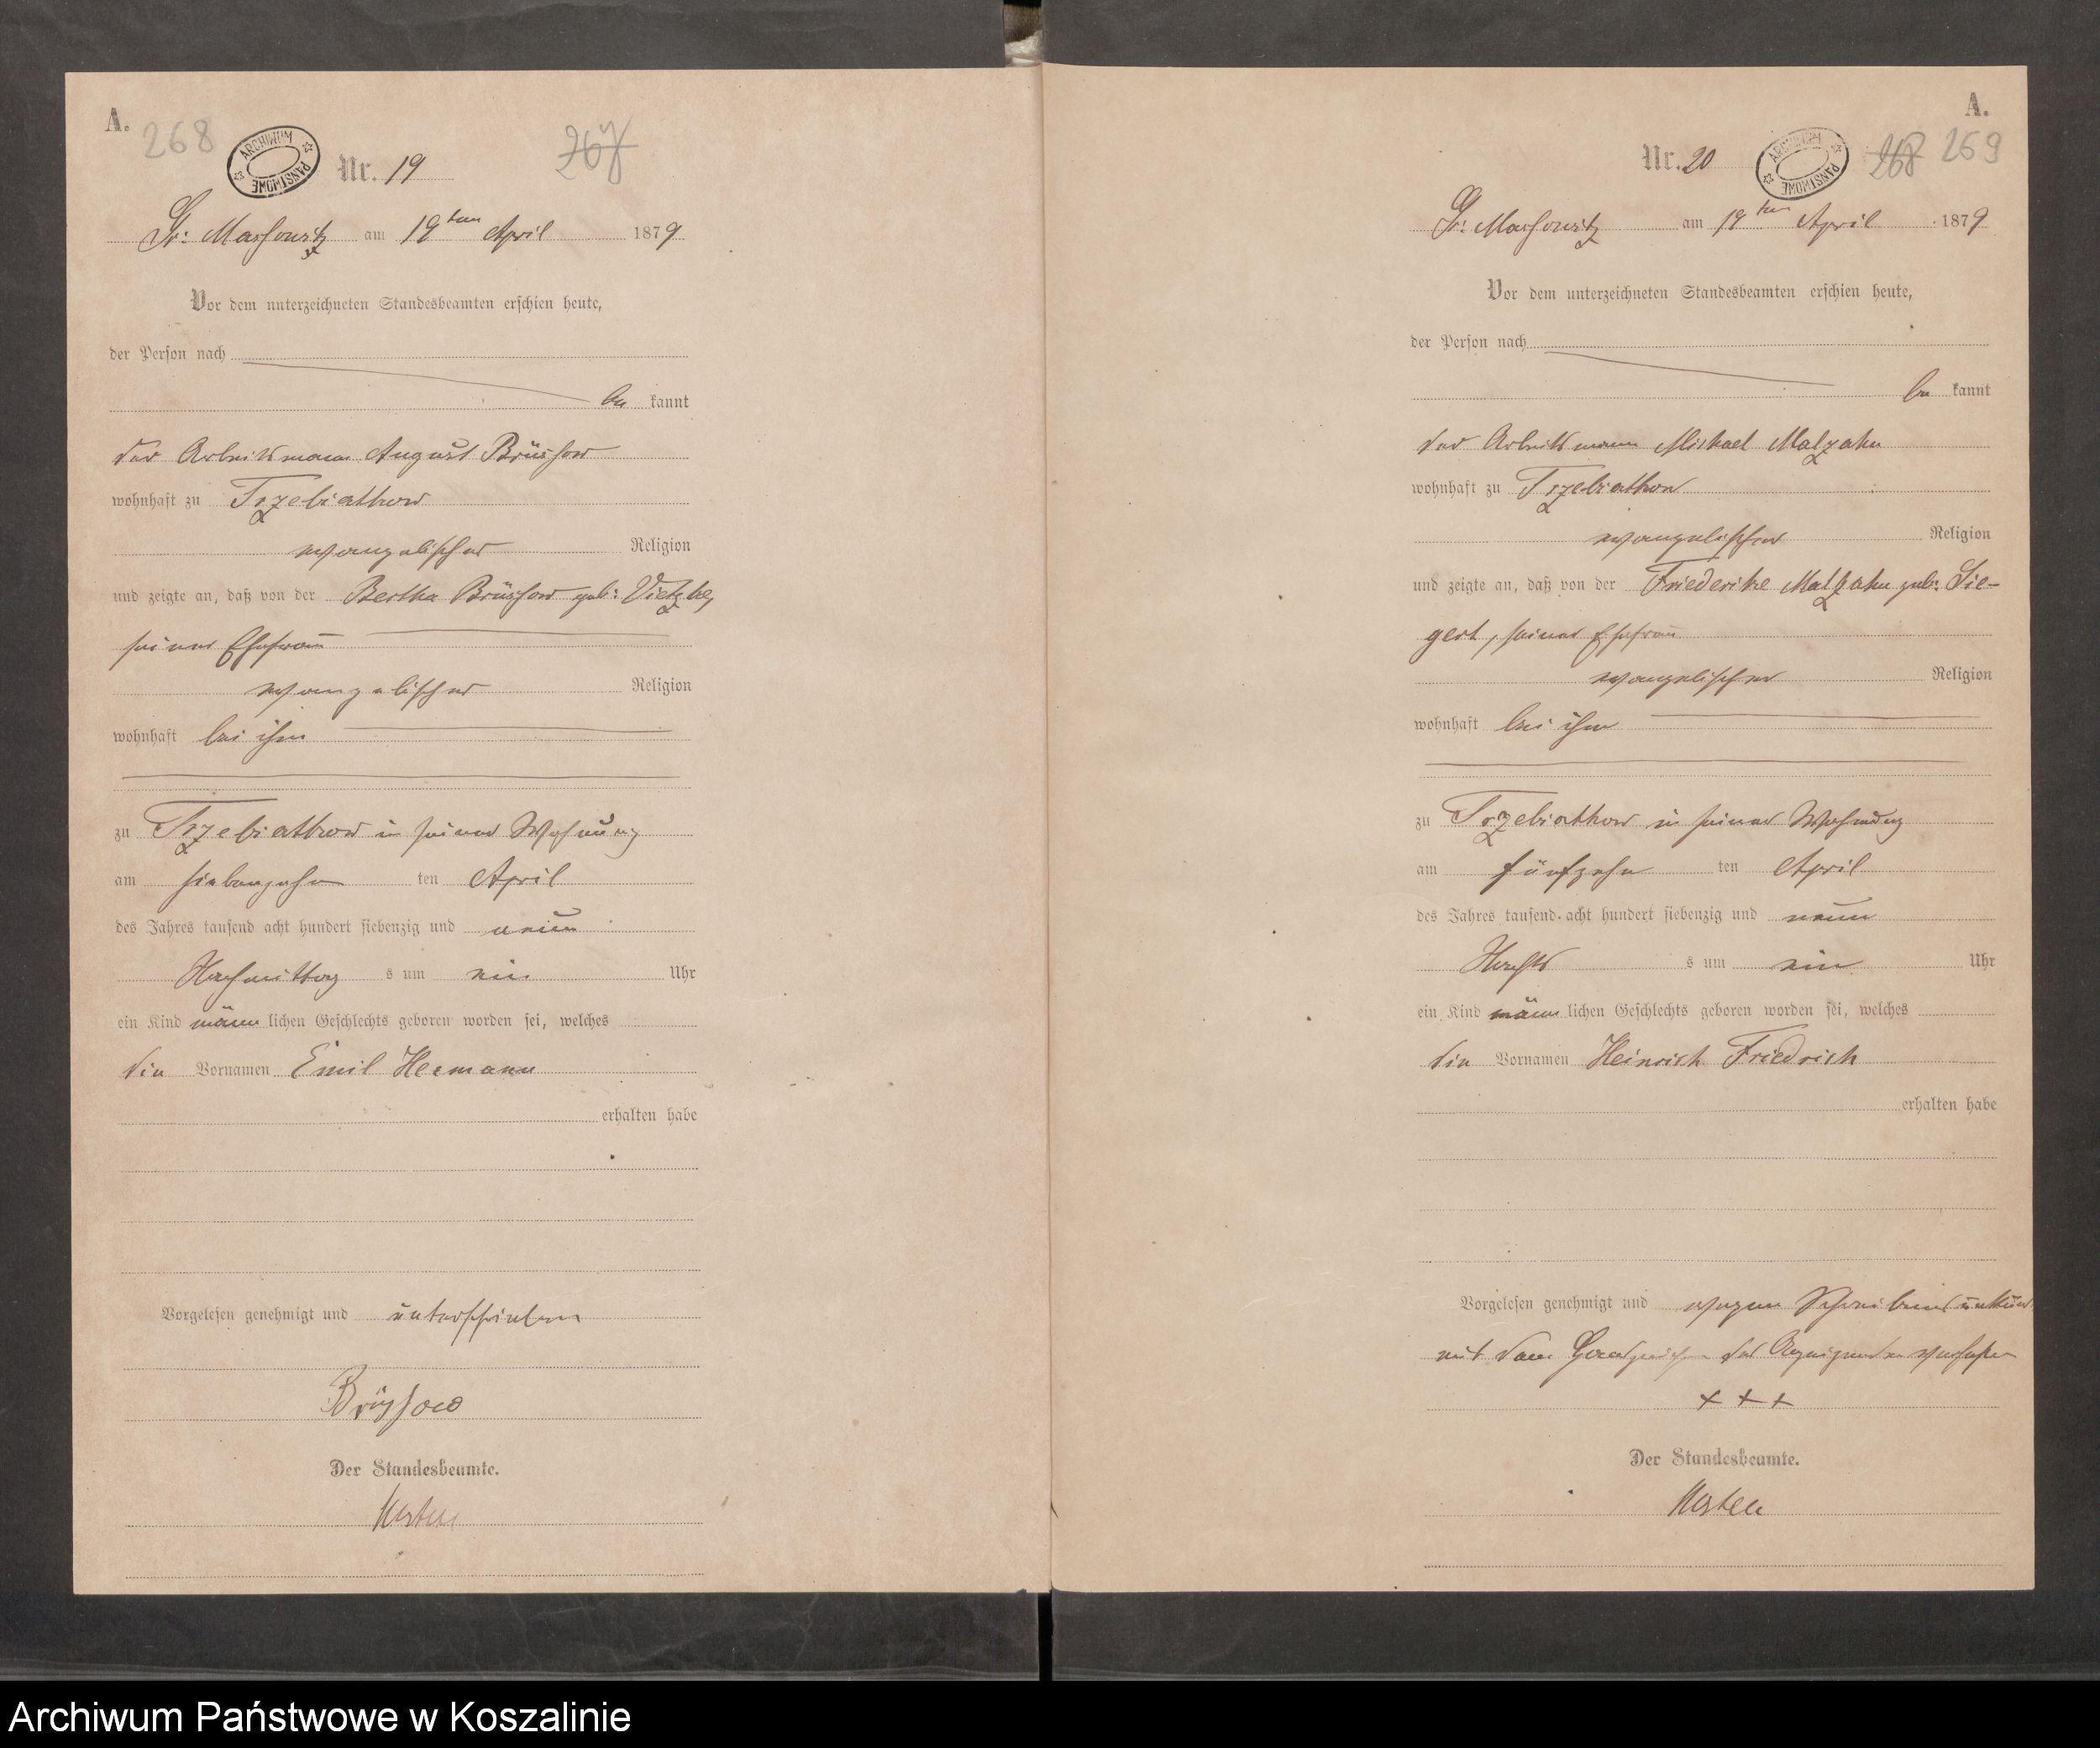 A.
268
ARCHIWUM PAŃSTWOWE
Nr. 19
267
Gr: Massowitz am 19ten April 1879
Vor dem unterzeichneten Standesbeamten erschien heute,
der Person nach
be kannt
der Arbeitsmann August Brüssow
wohnhaft zu Trzebiatkow
evangelischer Religion
und zeigte an, daß von der Bertha Brüssow geb: Vietzke,
seiner Ehefrau
evangelischer Religion
wohnhaft bei ihm
zu Trzebiatkow in seiner Wohnung
am siebenzehn ten April
des Jahres tausend acht hundert siebenzig und neun
Nachmittag s um ein Uhr
ein Kind männ lichen Geschlechts geboren worden sei, welches
die Vornamen Emil Hermann
erhalten habe
Vorgelesen genehmigt und unterschrieben
Brüssow
Der Standesbeamte.
A.
Nr. 20
ARCHIWUM PAŃSTWOWE
268 269
Gr: Massowitz am 19ten April 1879
Vor dem unterzeichneten Standesbeamten erschien heute,
der Person nach
be kannt
der Arbeitsmann Michael Malzahn
wohnhaft zu Trzebiatkow
evangelischer Religion
und zeigte an, daß von der Friederike Malzahn geb: Sie-
gert, seiner Ehefrau
evangelischer Religion
wohnhaft bei ihm
zu Trzebiatkow in seiner Wohnung
am fünfzehn ten April
des Jahres tausend acht hundert siebenzig und neun
Nacht s um ein Uhr
ein Kind männ lichen Geschlechts geboren worden sei, welches
die Vornamen Heinrich Friedrich
erhalten habe
Vorgelesen genehmigt und wegen Schreibens unkund.
mit dem Handzeichen des Anzeigenden versehen
+ + +
Der Standesbeamte.
Archiwum Państwowe w Koszalinie